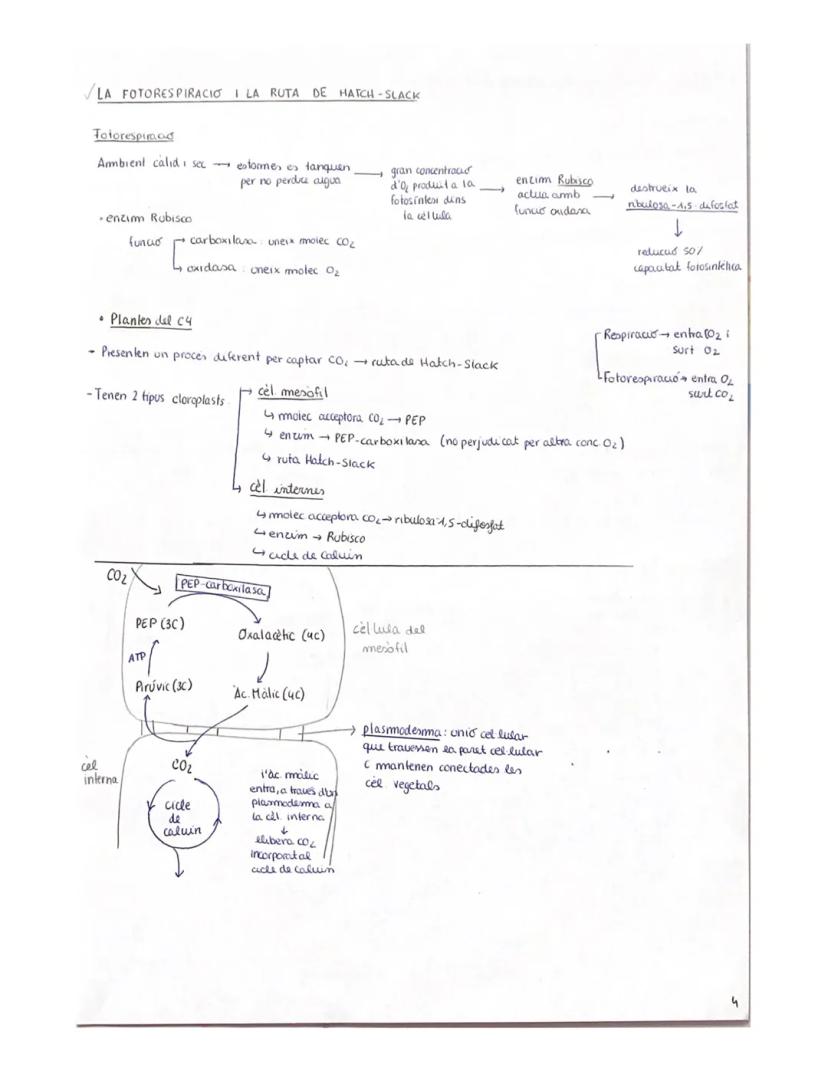 √ LA FOTORESPIRACIÓ I LA RUTA DE HATCH-SLACK
Fotorespiració
Ambient càlid i sec → estomes es tanquen
per no perdre aigua
→ gran concentració
d'O₂ produit a la
fotosíntesi dins
la cèl·lula
→ enzim Rubisco
actua amb
funció oxidasa
→ destrueix la
ribulosa-1,5-difosfat
↓
reducció 50%
capacitat fotosintètica
• enzim Rubisco
funció → carboxilasa: uneix molec CO₂
↳ oxidasa: uneix molec O₂
• Plantes del C4
- Presenten un procés diferent per captar CO₂ → ruta de Hatch-Slack
Respiració → entra CO₂ i
surt O₂
Fotorespiració → entra O₂
surt CO₂
- Tenen 2 tipus cloroplasts
→ cèl. mesòfil
↳ molec acceptora CO₂ → PEP
↳ enzim → PEP-carboxilasa (no perjudicat per altra conc. O₂)
↳ ruta Hatch-Slack
↳ cèl. internes
↳ molec acceptora CO₂ → ribulosa-1,5-difosfat
↳ enzim → Rubisco
↳ cicle de Calvin
CO₂
PEP-carboxilasa
PEP (3C)
Oxalacètic (4C)
ATP
Pirúvic (3C)
Àc. Màlic (4C)
cèl·lula del
mesòfil
→ plasmodesma: unió cel·lular
que travessen la paret cel·lular
i mantenen conectades les
cèl. vegetals
cèl
interna
CO₂
cicle
de
calvin
l'àc. màlic
entra, a través d'un
plasmodesma a
la cèl. interna
↓
llibera CO₂
incorporat al
cicle de Calvin
4